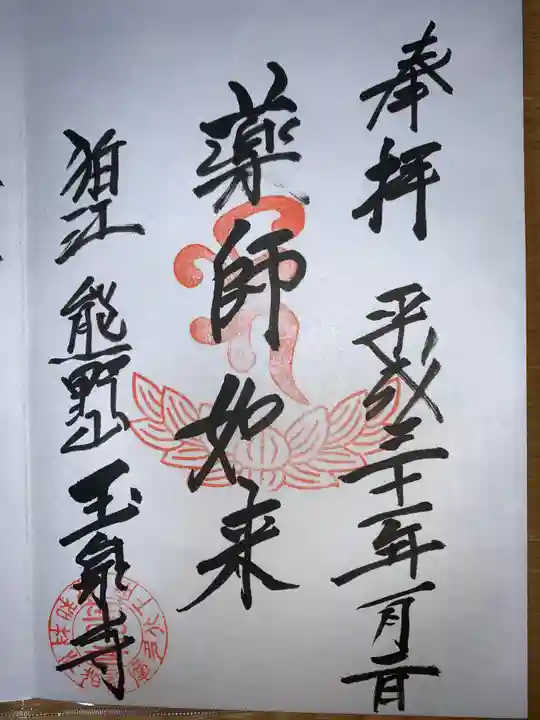 奉拝 平成三十一年一月二日
薬師如来
狛江 熊野山 玉泉寺